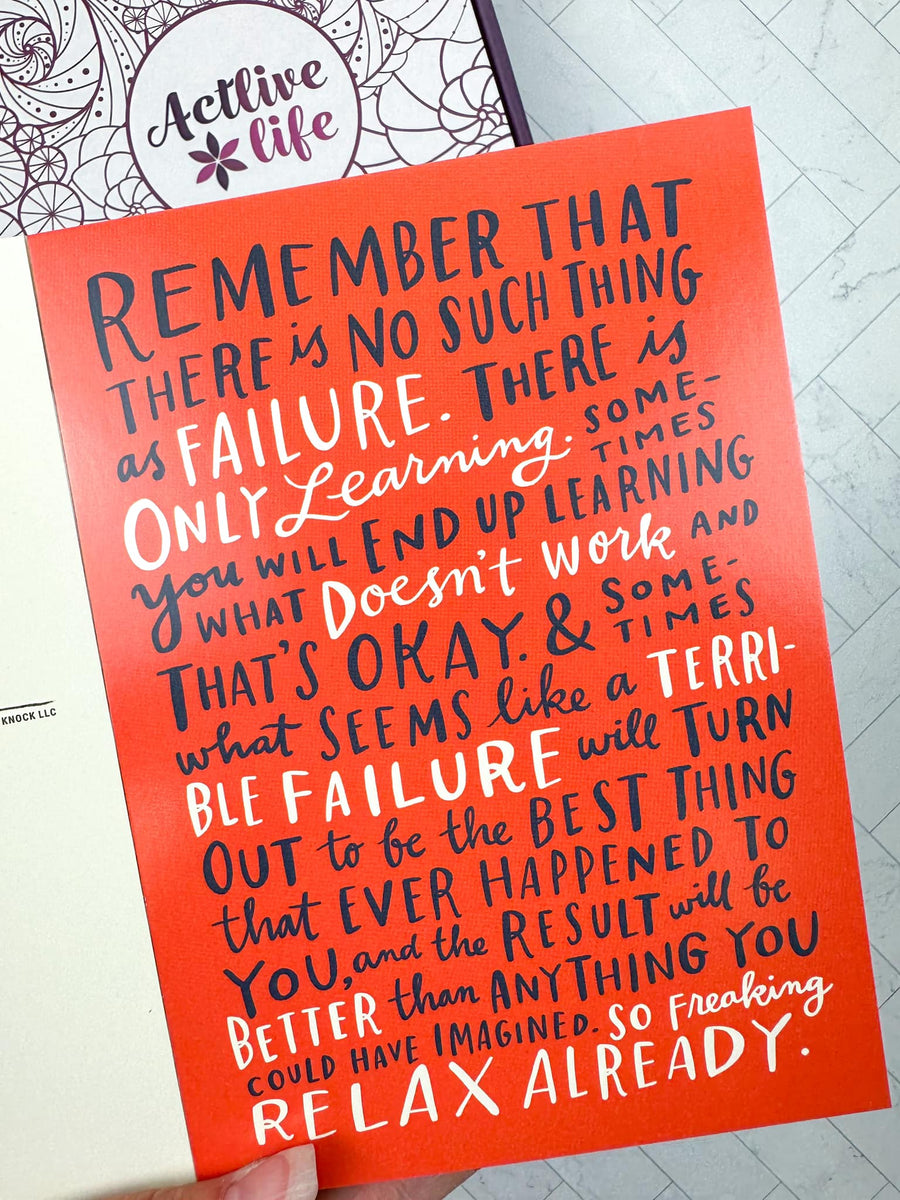 Actlive
life
REMEMBER THAT
THERE is NO SUCH THING
as FAILURE. THERE is
ONLY Learning. SOME-
TIMES
you WILL END UP LEARNING
WHAT Doesn't work AND
THAT'S OKAY. & SOME-
TIMES
what SEEMS like a TERRI-
BLE FAILURE will TURN
OUT to be the BEST THING
that EVER HAPPENED TO
YOU, and the RESULT will be
BETTER than ANYTHING YOU
COULD HAVE IMAGINED. SO Freaking
RELAX ALREADY.
KNOCK LLC